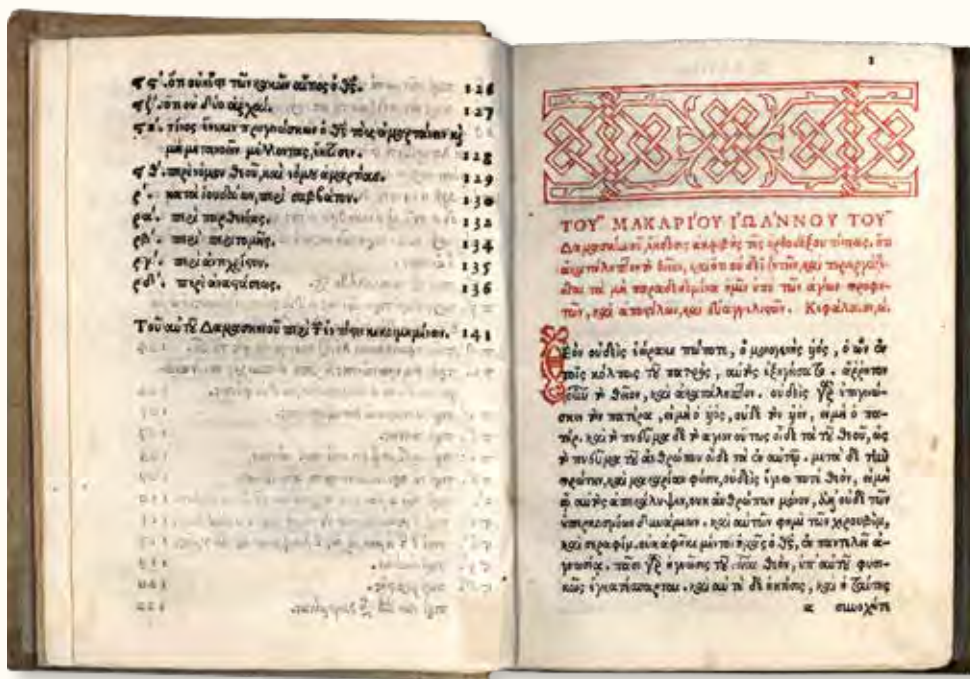 ϟϛʹ. ὅτι οὐκ ἔστι τῶν κακῶν αἴτιος ὁ θς. 126
ϟζʹ. ὅτι οὐ δύο ἀρχαί. 127
ϟηʹ. τίνος ἕνεκεν προγινώσκων ὁ θς τοὺς ἁμαρτάνειν καὶ
μὴ μετανοεῖν μέλλοντας, ἔκτισεν. 128
ϟθʹ. περὶ νόμου θεοῦ, καὶ νόμου ἁμαρτίας. 129
ρʹ. κατὰ ἰουδαίων, περὶ σαββάτου. 130
ραʹ. περὶ παρθενίας. 132
ρβʹ. περὶ περιτομῆς. 134
ργʹ. περὶ ἀντιχρίστου. 135
ρδʹ. περὶ ἀναστάσεως. 136
Τοῦ αὐτοῦ Δαμασκηνοῦ περὶ τῶν ἐν πίστει κεκοιμημένων. 141
1
ΤΟΥ͂ ΜΑΚΑΡΙ´ΟΥ ἸΩΆΝΝΟΥ ΤΟΥ͂
Δαμασκηνοῦ, ἔκδοσις ἀκριβὴς τῆς ὀρθοδόξου πίστεως, ὅτι
ἀκατάληπτον τὸ θεῖον, καὶ ὅτι οὐ δεῖ ζητεῖν, καὶ περιεργάζε-
σθαι τὰ μὴ παραδεδομένα ἡμῖν ὑπὸ τῶν ἁγίων προφη-
τῶν, καὶ ἀποστόλων, καὶ εὐαγγελιστῶν. Κεφάλαιον α.
Θεὸν οὐδεὶς ἑώρακε πώποτε, ὁ μονογενὴς υἱός, ὁ ὢν ἐν
τοῖς κόλποις τοῦ πατρός, αὐτὸς ἐξηγήσατο. ἄρρητον
οὖν τὸ θεῖον, καὶ ἀκατάληπτον. οὐδεὶς γὰρ ἐπιγινώ-
σκει τὸν πατέρα, εἰ μὴ ὁ υἱός, οὐδὲ τὸν υἱόν, εἰ μὴ ὁ πα-
τήρ. καὶ τὸ πνεῦμα δὲ τὸ ἅγιον οὕτως οἶδε τὰ τοῦ θεοῦ, ὡς
τὸ πνεῦμα τοῦ ἀνθρώπου οἶδε τὰ ἐν αὐτῷ. μετὰ δὲ τὴν
πρώτην, καὶ μακαρίαν φύσιν, οὐδεὶς ἔγνω ποτὲ θεόν, εἰ μὴ
ᾧ αὐτὸς ἀπεκάλυψεν, οὐκ ἀνθρώπων μόνον, ἀλλ' οὐδὲ τῶν
ὑπερκοσμίων δυνάμεων. καὶ αὐτῶν φημὶ τῶν χερουβίμ,
καὶ σεραφίμ. οὐκ ἀφῆκε μέντοι ἡμᾶς ὁ θς, ἐν παντελεῖ ἀ-
γνωσίᾳ. πᾶσι γὰρ ἡ γνῶσις τοῦ εἶναι θεόν, ὑπ' αὐτοῦ φυσι-
κῶς ἐγκατέσπαρται. καὶ αὐτὴ δὲ ἡ κτίσις, καὶ ἡ ταύτης
α συνοχή τε